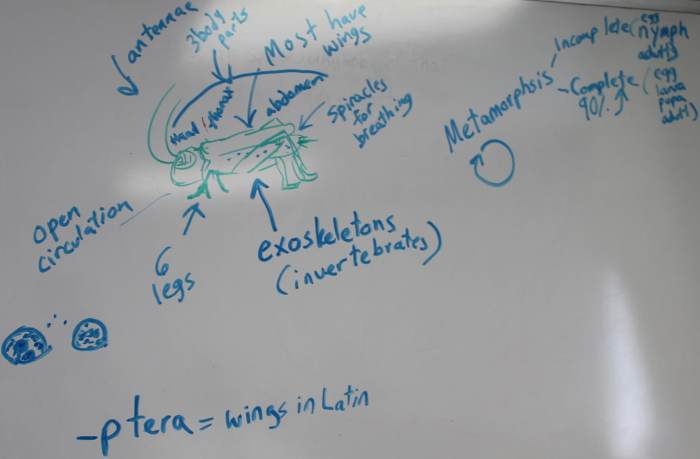 antennae
3 body
parts
Most have
wings
Head
thorax
abdomen
Spiracles
for
breathing
open
circulation
6
legs
exoskeletons
(invertebrates)
Metamorphsis
Incomplete (egg
nymph
adult)
Complete
90%
(egg
larva
pupa
adult)
-ptera = wings in Latin